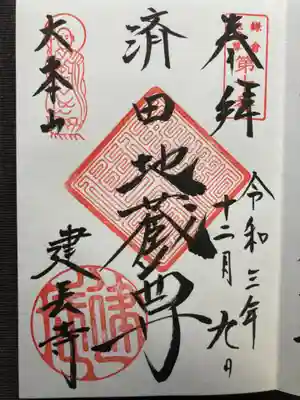 奉拝
鎌倉
第
令和三年
十二月九日
済田
地蔵尊
大本山
建長寺